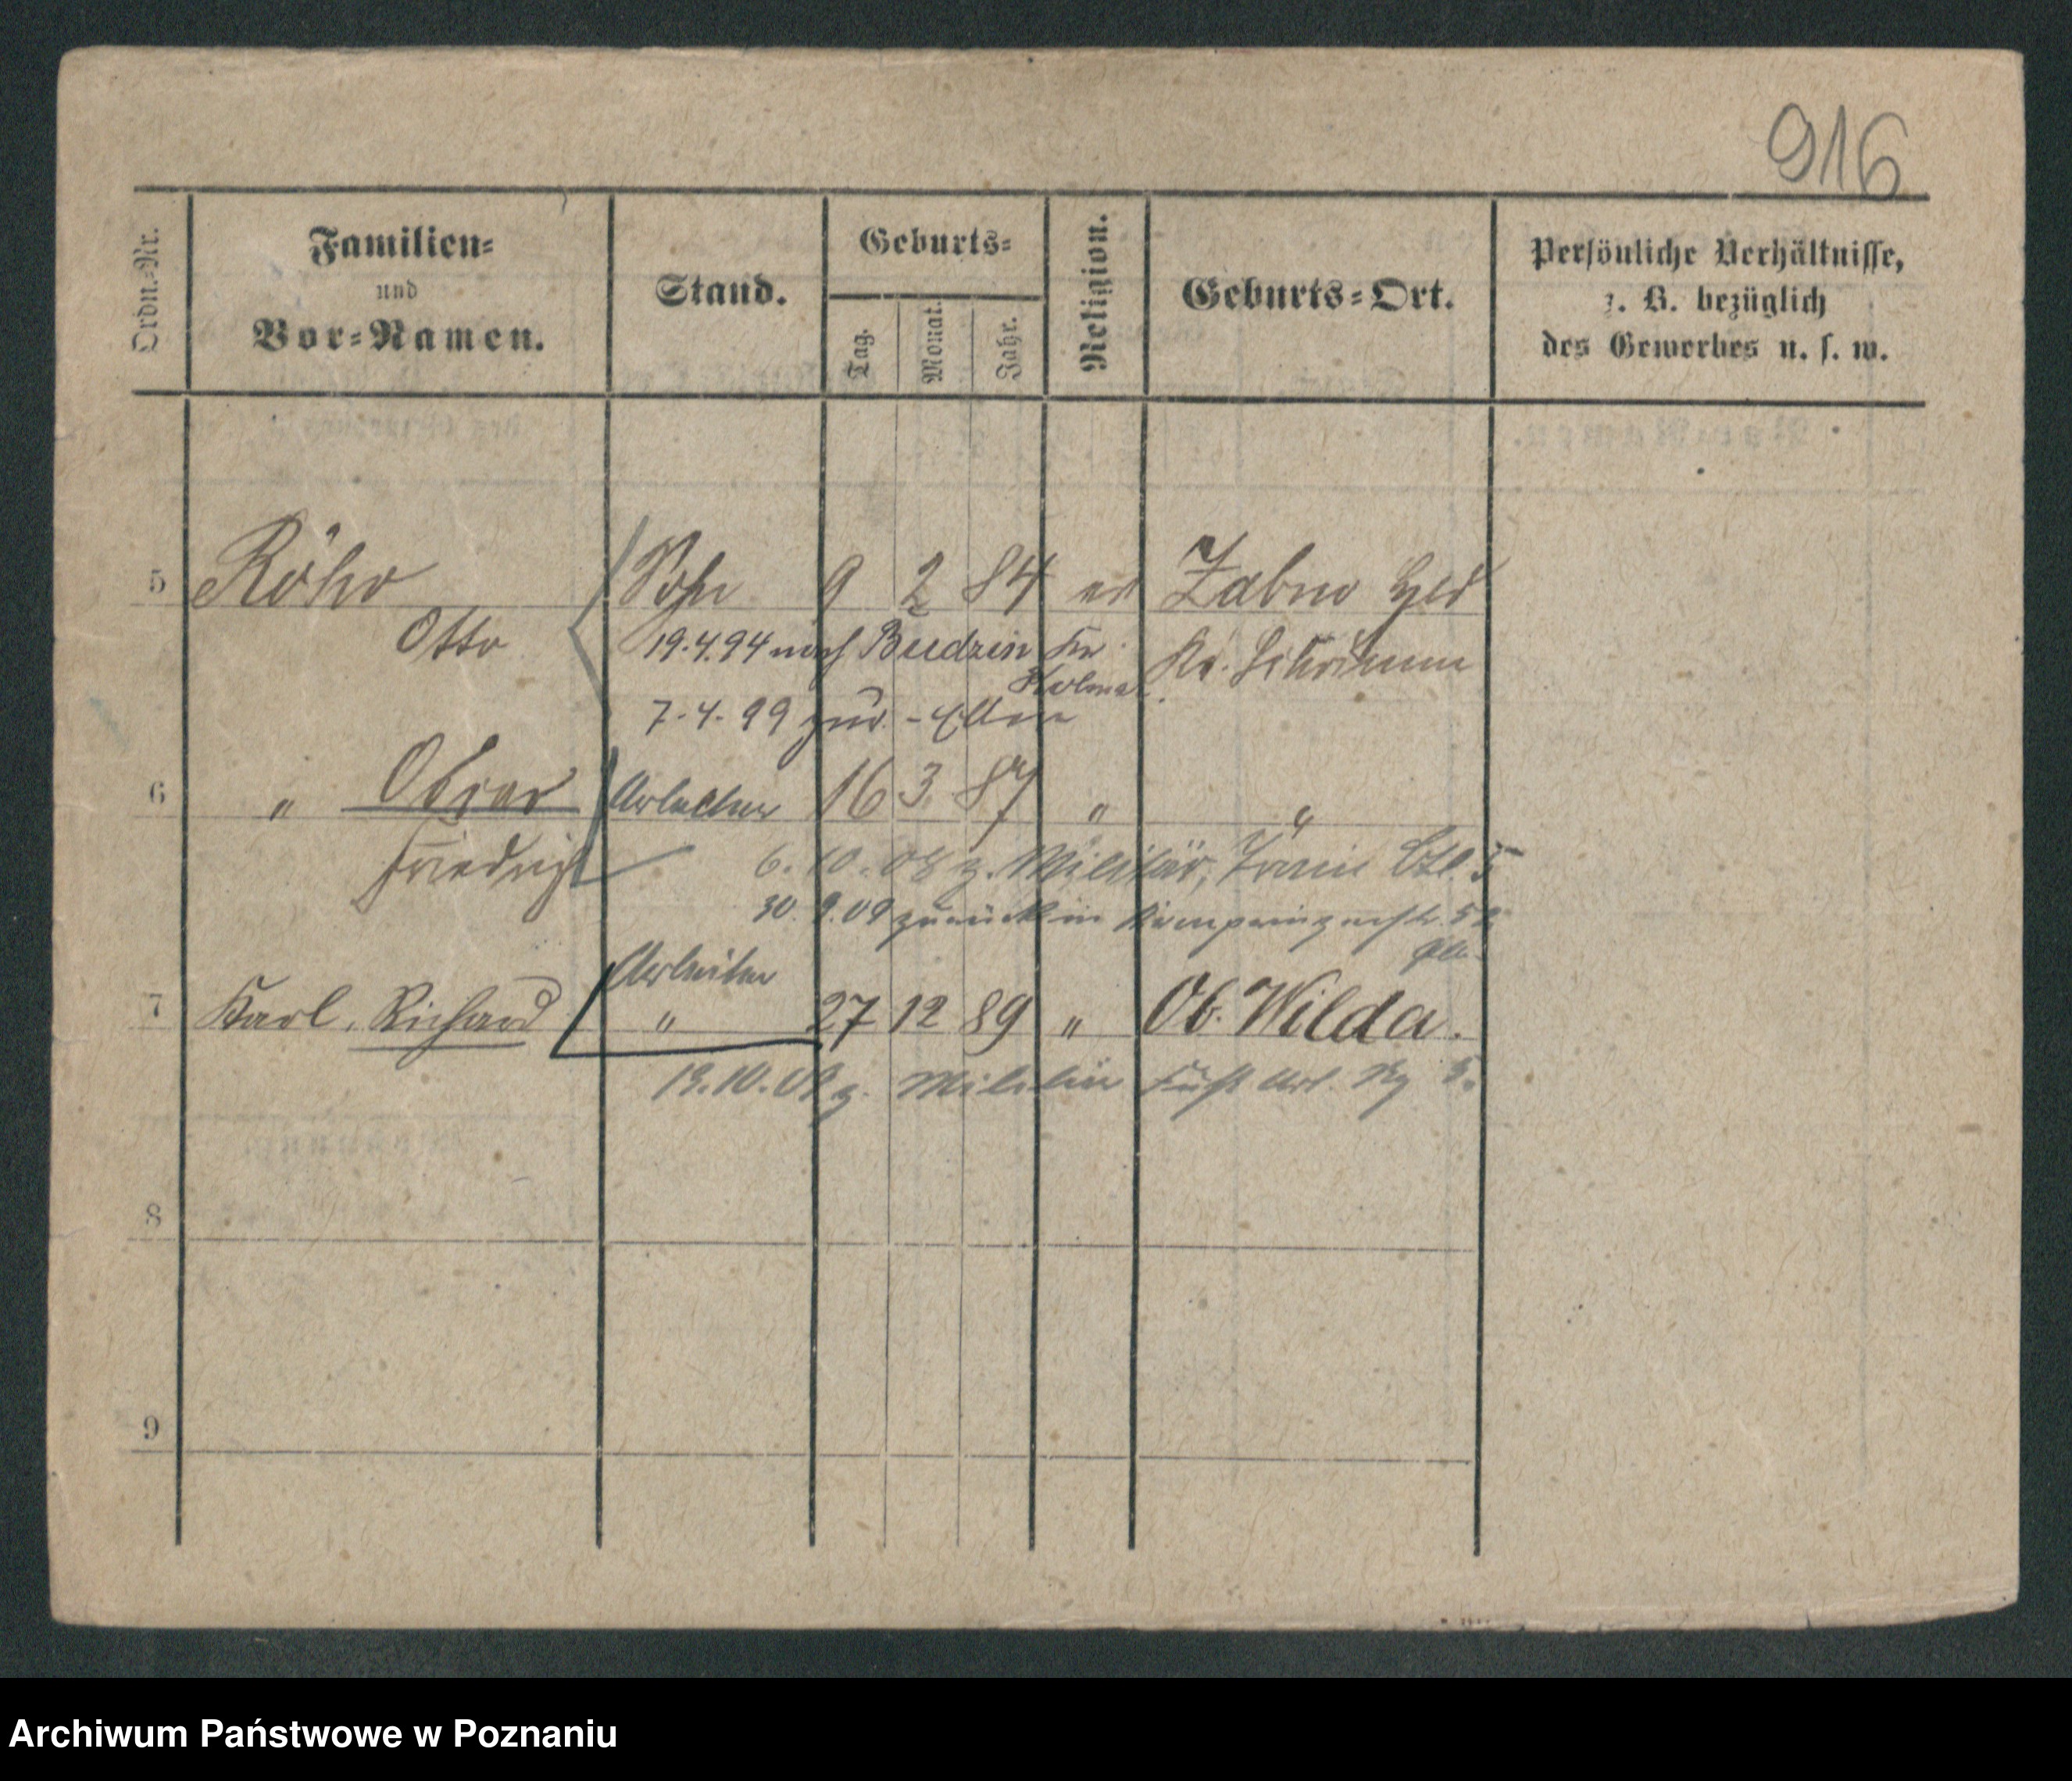 916
Ordn.=Nr.
Familien=
und
Vor=Namen.
Stand.
Geburts=
Tag.
Monat.
Jahr.
Religion.
Geburts=Ort.
Persönliche Verhältnisse,
z. B. bezüglich
des Gewerbes u. s. w.
5 Röhr Sohn 9 2 84 ev Zabno
Otto 19.4.94 nach Budzin Kr. Kr. Schrimm
Kolmar
7.4.99 zur.
6 " Oscar Arbeiter 16 3. 87 " "
Friedrich 6.10.08 z. Militär, Train Btl. 5
30.9.09 zurück in Kronprinzenstr.
Arbeiter
7 Karl, Richard " 27 12 89 " Ob. Wilda.
z. Militär Fußt Art. Rg 5.
8
9
Archiwum Państwowe w Poznaniu